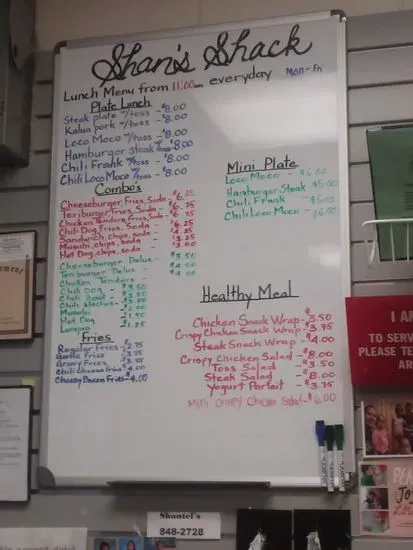 Shan's Shack
Lunch Menu from 11:00am everyday Mon-Fri
Plate Lunch
Steak plate w/toss - $8.00
Kalua pork w/toss - $8.00
Loco Moco w/toss - $8.00
Hamburger steak w/toss - $8.00
Chili Frank w/toss - $8.00
Chili Loco Moco w/toss - $8.00
Combo's
Cheeseburger, Fries, Soda -
Teriburger, Fries, Soda - $6.75
Chicken Tenders, Fries, Soda - $6.75
Chili Dog, Fries, Soda - $6.25
Sandwich, chips, soda -
Musubi, chips, soda - $3.25
Hot Dog, chips, soda - $3.00
Cheeseburger Delux - $3.50
Teriburger Delux - $4.00
Chicken Tenders - $4.00
Chili Dog - $3.50
Chili Bowl - $3.50
Chili Nachos - $3.50
Musubi -
Hot Dog - $1.50
Lumpia - $1.25
Fries
Regular Fries - $2.75
Garlic Fries - $3.25
Gravy Fries - $3.25
Chili Cheese Fries - $4.00
Cheesy Bacon Fries - $4.00
Mini Plate
Loco Moco - $5.00
Hamburger Steak $5.00
Chili Frank - $5.00
Chili Loco Moco -
Healthy Meal
Chicken Snack Wrap - $3.50
Crispy Chicken Snack Wrap - $3.95
Steak Snack Wrap - $4.00
Crispy Chicken Salad - $8.00
Toss Salad - $3.50
Steak Salad - $8.00
Yogurt Parfait - $3.75
Mini Crispy Chicken Salad - $6.00
I A
TO SERV
PLEASE TE
AR
Shontel's
848-2728